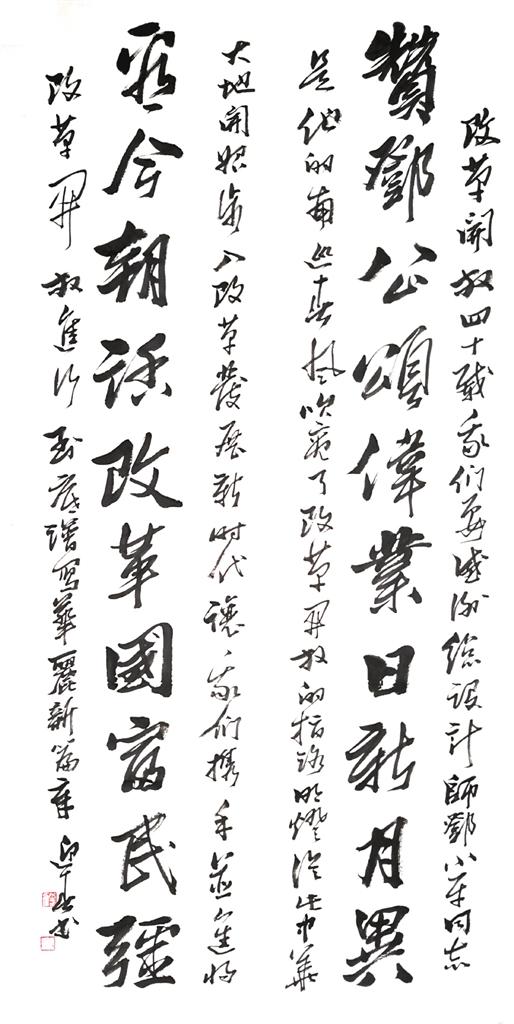 改革開放四十載我们要感謝總設計師鄧小平同志
贊鄧公頌偉業日新月異
是他的南巡春風吹亮了改革开放的指路明燈從此中華
大地開始步入改革發展新时代讓我们携手並進將
看今朝話改革國富民彊
改革开放進行到底譜寫華麗新篇章 迎春书